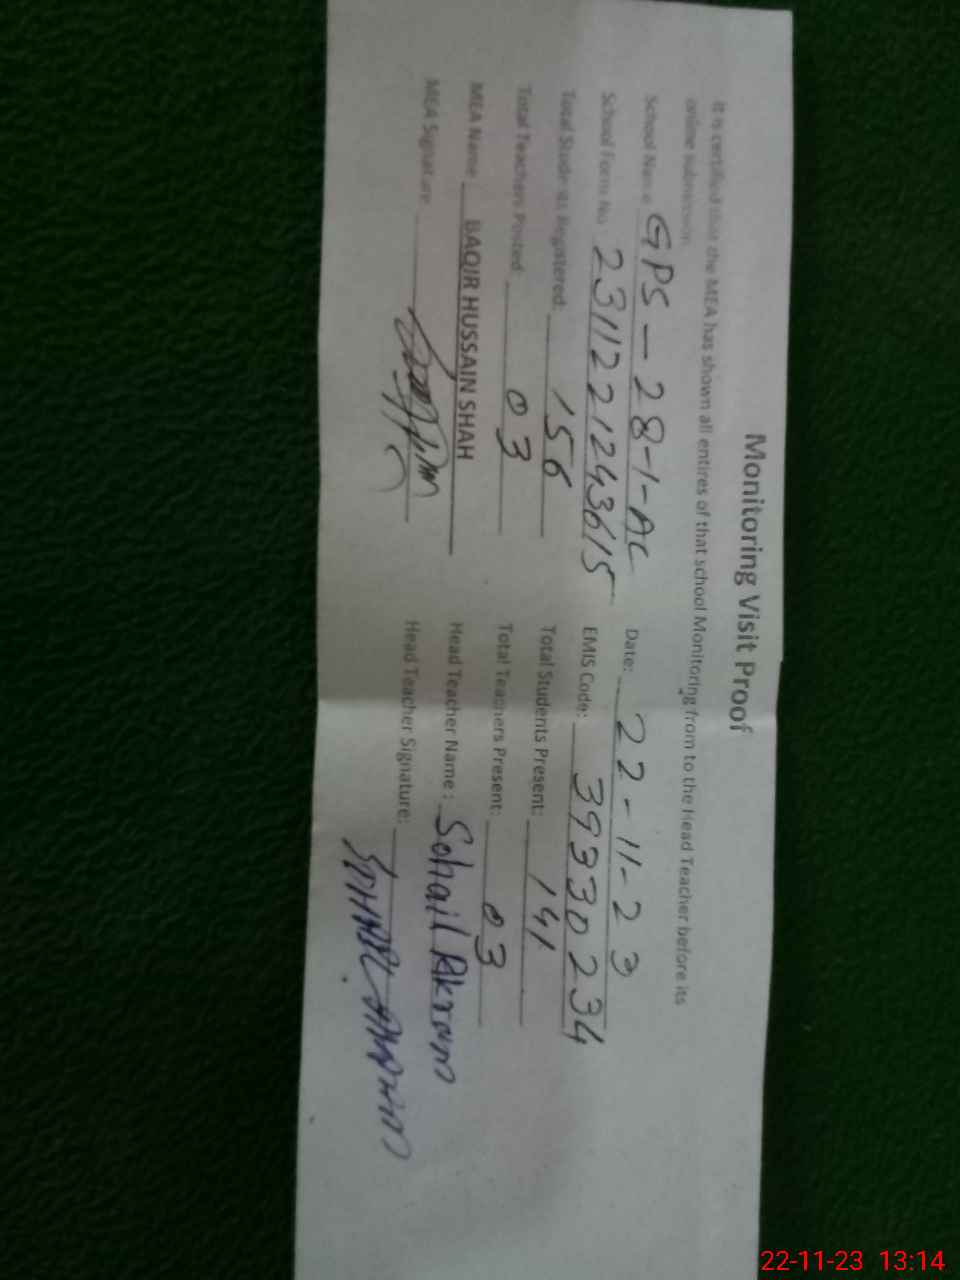 Monitoring Visit Proof
It is certified that the MEA has shown all entires of that school Monitoring from to the Head Teacher before its
online submission.
School Name GPS-28-1-AL Date: 22-11-23
School Form No. 2311221243615 EMIS Code: 39330234
Total Students Registered: 156 Total Students Present: 141
Total Teachers Posted: 03 Total Teachers Present: 03
MEA Name BAQIR HUSSAIN SHAH Head Teacher Name: Sohail Akram
MEA Signature Head Teacher Signature:
22-11-23 13:14